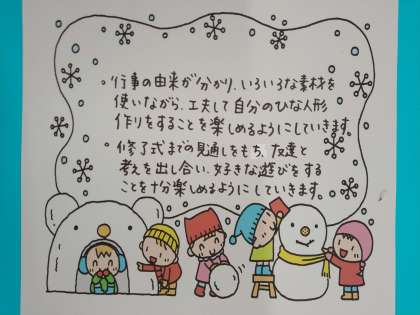 。行事の由来が分かり、いろいろな素材を
使いながら、工夫して自分のひな人形
作りをすることを楽しめるようにしていきます。
。修了式までの見通しをもち、友達と
考えを出し合い、好きな遊びをする
ことを十分楽しめるようにしていきます。